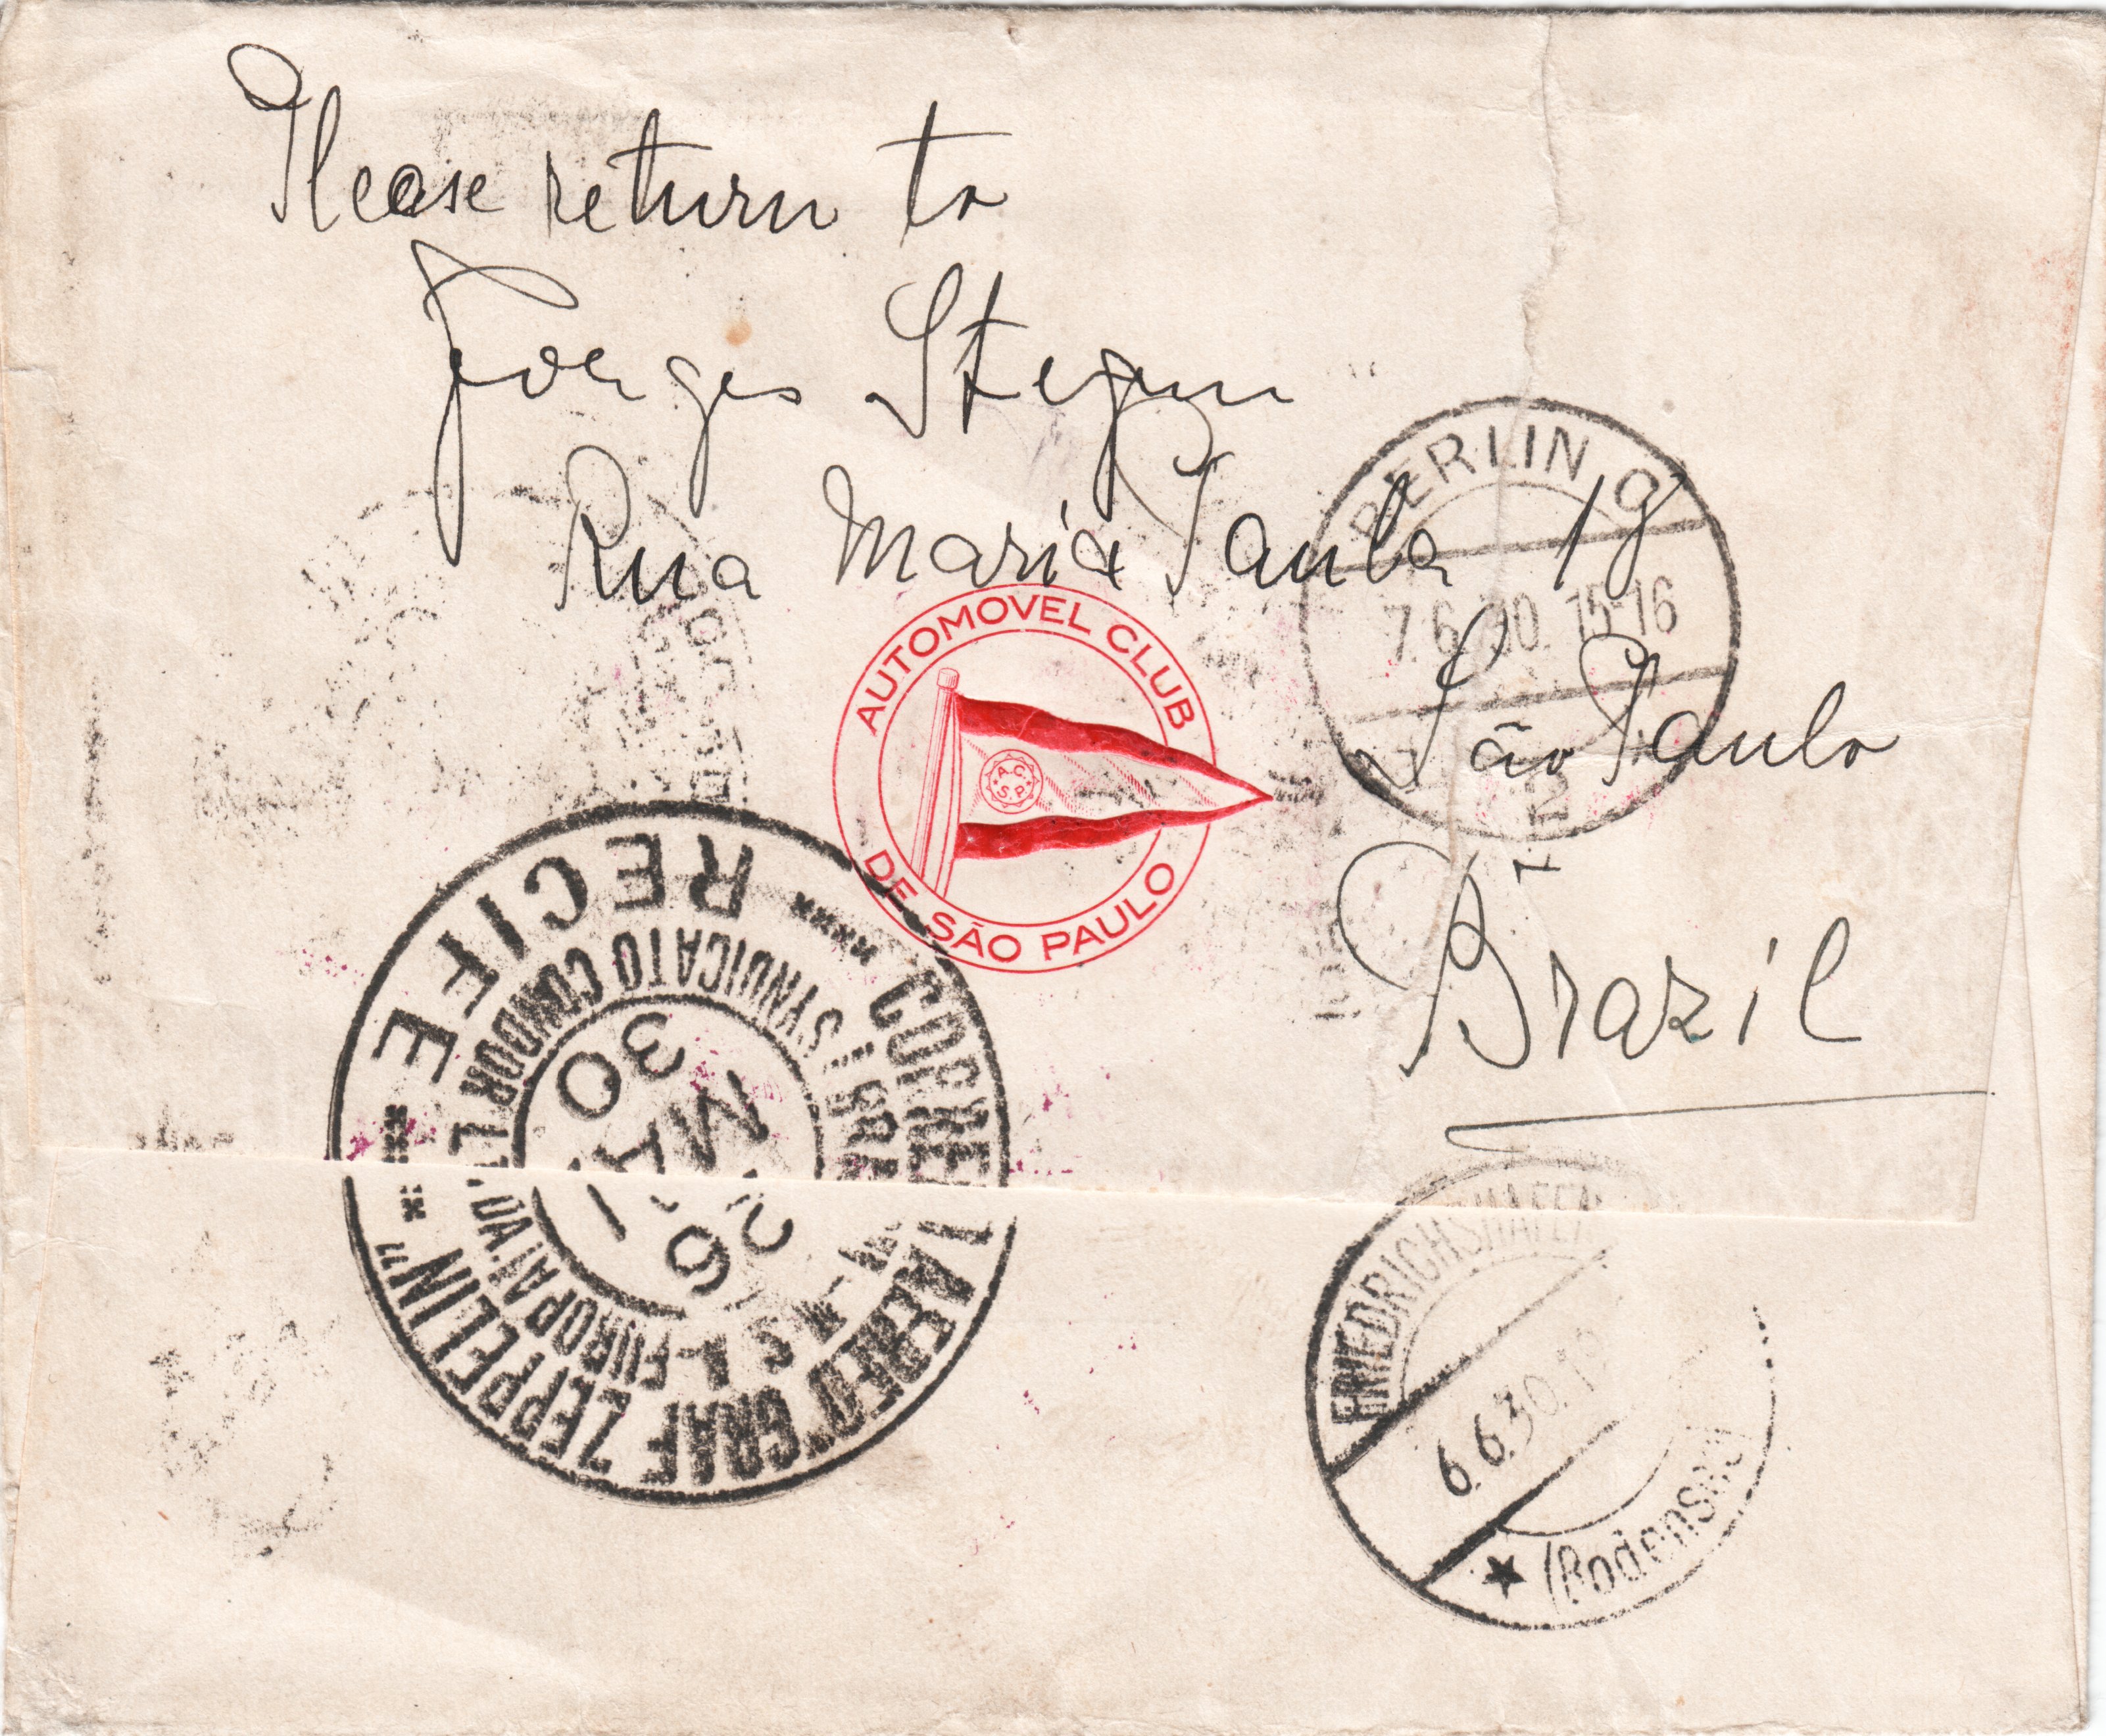 Please return to
Rua Maria Paula 19
São Paulo
Brazil
BERLIN
7.6.30. 15-16
AUTOMOVEL CLUB
DE SÃO PAULO
A.C.
S.P.
RECIFE
CORREIO AEREO "GRAF ZEPPELIN"
SYNDICATO CONDOR LTDA.
EUROPA
26
MAI
30
FRIEDRICHSHAFEN
6.6.30.
(Bodensee)